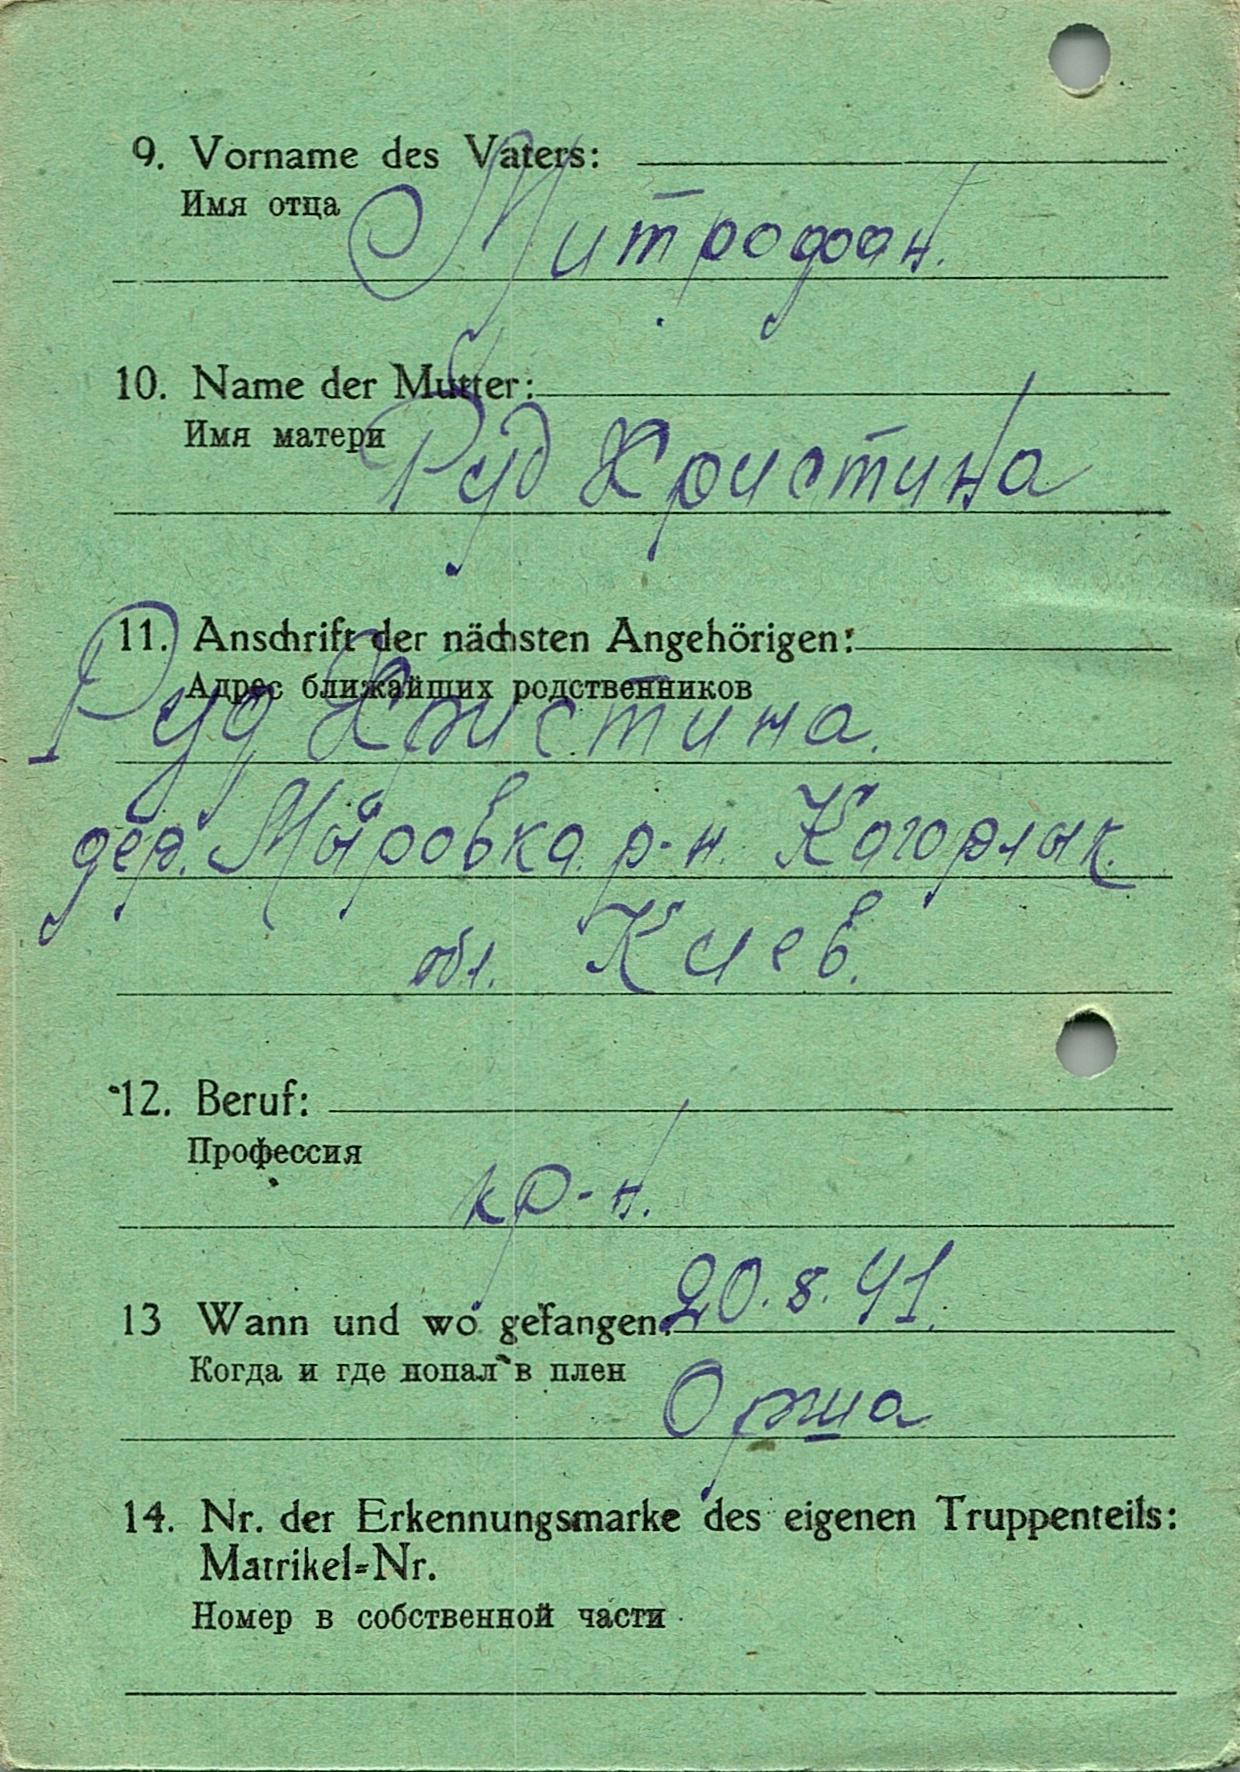 9. Vorname des Vaters:
Имя отца
Митрофан.
10. Name der Mutter:
Имя матери
Руд Христина
11. Anschrift der nächsten Angehörigen:
Адрес ближайших родственников
Руд Христина.
дер. Маровка р-н. Кагорлык.
обл. Киев.
12. Beruf:
Профессия
кр-н.
20.8.41.
13 Wann und wo gefangen:
Когда и где попал в плен
Орша
14. Nr. der Erkennungsmarke des eigenen Truppenteils:
Matrikel=Nr.
Номер в собственной части